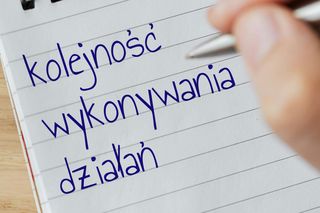 kolejność
wykonywania
działań